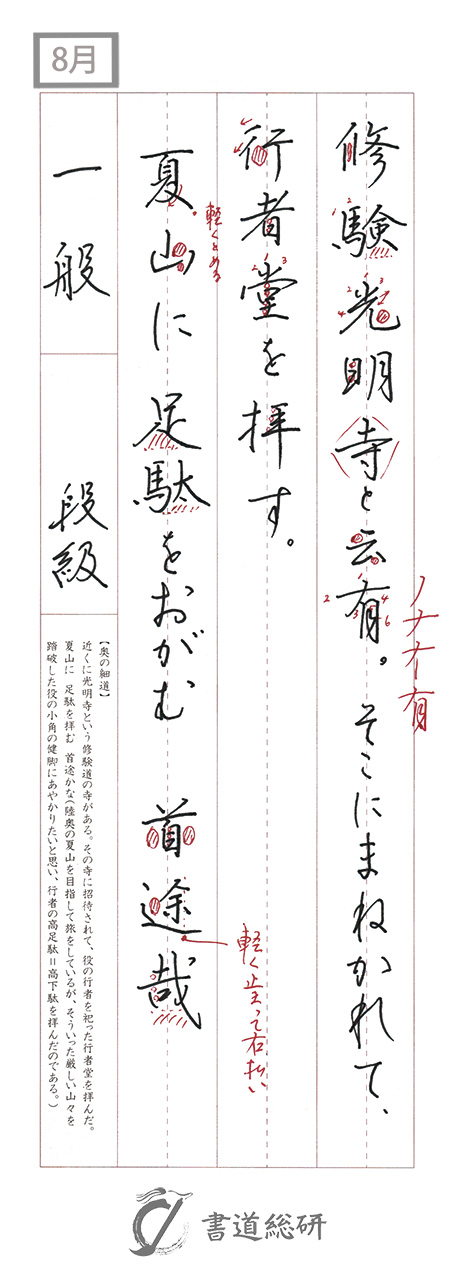 8月
修験光明寺と云有。そこにまねかれて、
行者堂を拝す。
夏山に 足駄をおがむ 首途哉
一般 段級
軽くとめる
ノナナー有
軽く止まって右払い
1
2
3
4
6
【奥の細道】
近くに光明寺という修験道の寺がある。その寺に招待されて、役の行者を祀った行者堂を拝んだ。
夏山に 足駄を拝む 首途かな(陸奥の夏山を目指して旅をしているが、そういった厳しい山々を
踏破した役の小角の健脚にあやかりたいと思い、行者の高足駄=高下駄を拝んだのである。)
書道総研